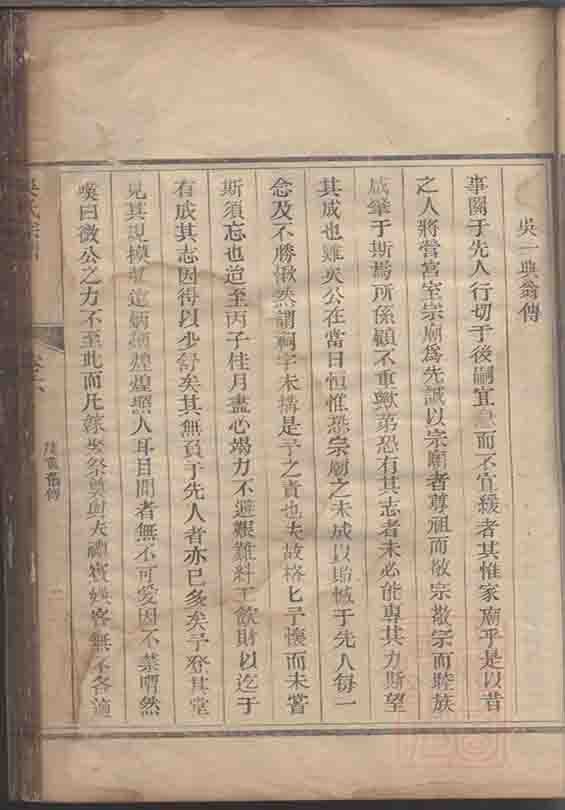 吳一典翁傳
事關于先人行切于後嗣宜急而不宜緩者其惟家廟乎是以昔
之人將營宮室宗廟為先誠以宗廟者尊祖而敬宗敬宗而睦族
咸肇于斯焉所係顧不重歟第恐有其志者未必能專其力斯望
其成也難矣公在當日恒惟恐宗廟之未成以貽慽于先人每一
念及不勝愀然謂祠宇未搆是予之責也夫故格匕予懷而未嘗
斯須忘也迨至丙子桂月盡心竭力不避艱難料工飲財以迄于
有成其志因得以少舒矣其無負于先人者亦已多矣予登其堂
見其規模 達炳 煌煌照人耳目間者無不可愛因不禁喟然
嘆曰微公之力不至此而凡 祭奠與夫禮賓娛客無不各適
吳氏宗
翁傳